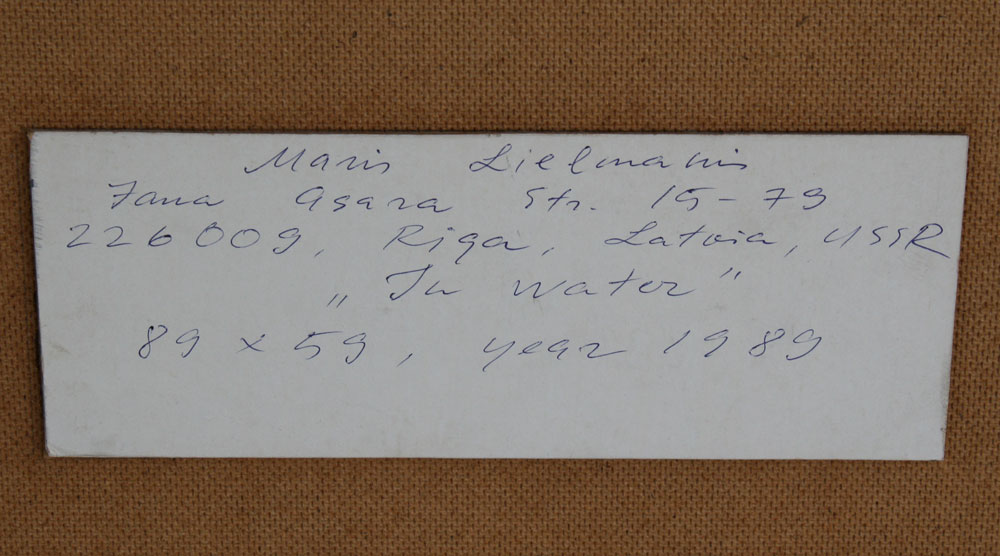 Maris Lielmanis
Jana Asara Str. 15-79
226009, Riga, Latvia, USSR
„In water”
89 x 59, year 1989